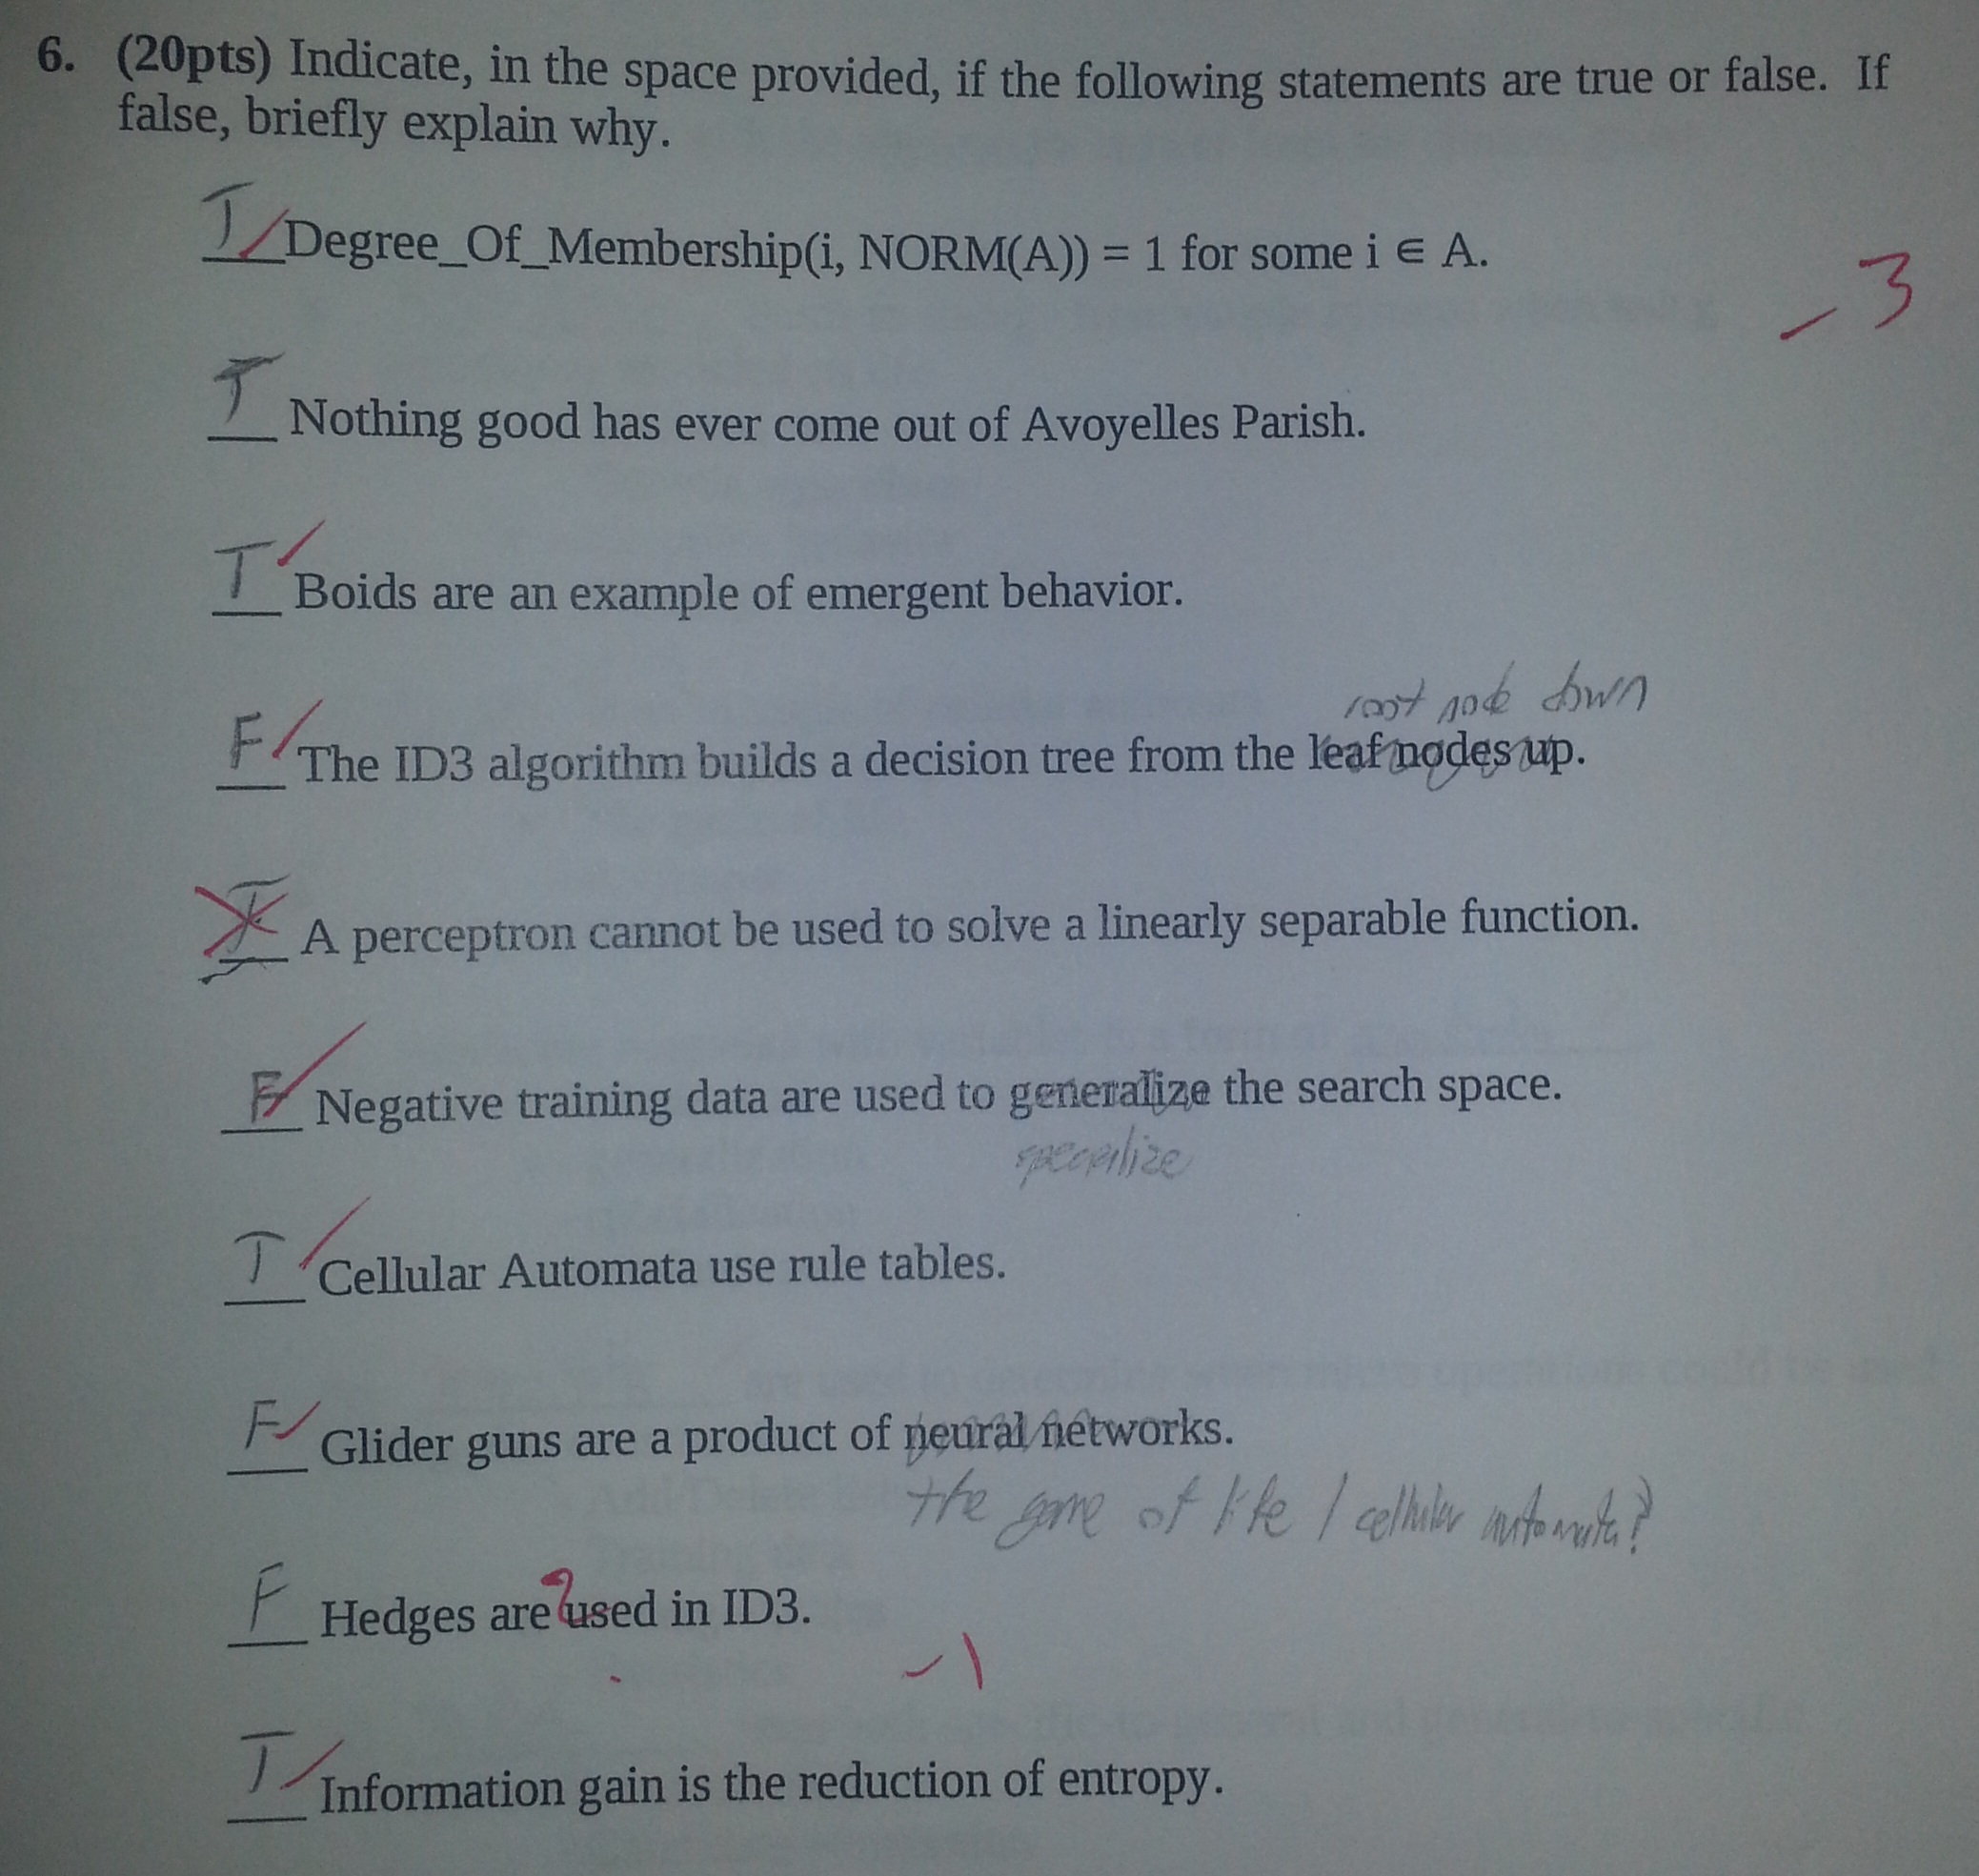 6. (20pts) Indicate, in the space provided, if the following statements are true or false. If
false, briefly explain why.
T Degree_Of_Membership(i, NORM(A)) = 1 for some i ∈ A.
-3
T Nothing good has ever come out of Avoyelles Parish.
T Boids are an example of emergent behavior.
root node down
F The ID3 algorithm builds a decision tree from the leaf nodes up.
A perceptron cannot be used to solve a linearly separable function.
F Negative training data are used to generalize the search space.
specialize
T Cellular Automata use rule tables.
F Glider guns are a product of neural networks.
the game of life / cellular automata?
F Hedges are used in ID3.
-1
T Information gain is the reduction of entropy.